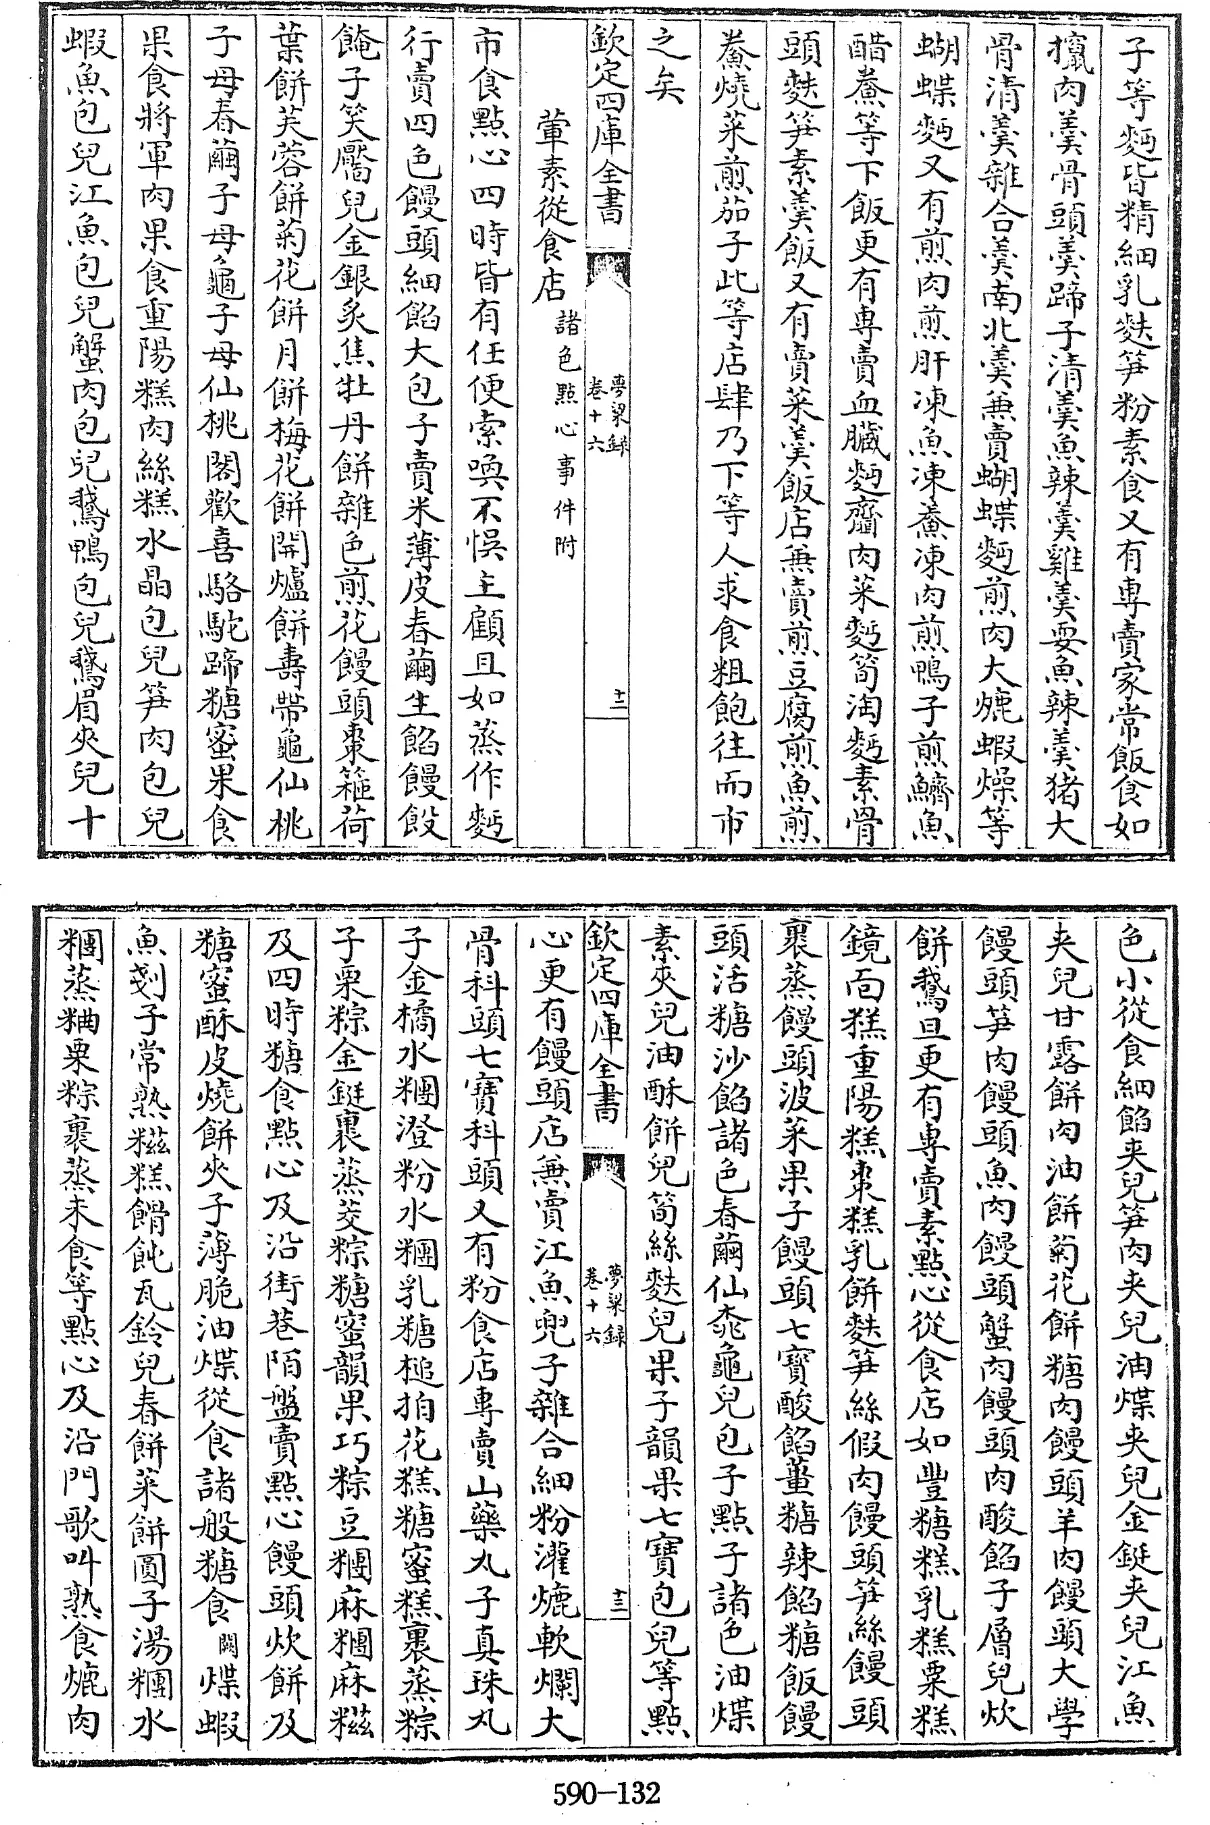 子等麪皆精細乳麩笋粉素食又有專賣家常飯食如
攛肉羮骨頭羮蹄子清羮魚辣羮雞羮耍魚辣羮猪大
骨清羮雜合羮南北羮兼賣蝴蝶麪煎肉大熝蝦燥等
蝴蝶麪又有煎肉煎肝凍魚凍鮝凍肉煎鴨子煎鱭魚
醋鮝等下飯更有專賣血臟麪虀肉菜麪筍淘麪素骨
頭麩笋素羮飯又有賣菜羮飯店兼賣煎豆腐煎魚煎
鮝燒菜煎茄子此等店肆乃下等人求食粗飽往而市
之矣
欽定四庫全書
夢粱録
卷十六
十二
葷素從食店諸色點心事件附
市食點心四時皆有任便索喚不悞主顧且如蒸作麪
行賣四色饅頭細餡大包子賣米薄皮春繭生餡饅餖
餣子笑靨兒金銀炙焦牡丹餅雜色煎花饅頭棗箍荷
葉餅芙蓉餅菊花餅月餅梅花餅開爐餅壽帶龜仙桃
子母春繭子母龜子母仙桃閣歡喜駱駝蹄糖蜜果食
果食將軍肉果食重陽糕肉絲糕水晶包兒笋肉包兒
蝦魚包兒江魚包兒蟹肉包兒鵞鴨包兒鵞眉夾兒十
色小從食細餡夾兒笋肉夾兒油煠夾兒金鋌夾兒江魚
夾兒甘露餅肉油餅菊花餅糖肉饅頭羊肉饅頭大學
饅頭笋肉饅頭魚肉饅頭蟹肉饅頭肉酸餡子層兒炊
餅鵞旦更有專賣素點心從食店如豐糖糕乳糕粟糕
鏡面糕重陽糕棗糕乳餅麩笋絲假肉饅頭笋絲饅頭
裹蒸饅頭波菜果子饅頭七寶酸餡薑糖辣餡糖飯饅
頭活糖沙餡諸色春繭仙桃龜兒包子點子諸色油煠
素夾兒油酥餅兒筍絲麩兒果子韻果七寶包兒等點
欽定四庫全書
夢粱録
卷十六
十三
心更有饅頭店兼賣江魚兜子雜合細粉灌熝軟爛大
骨料頭七寶科頭又有粉食店專賣山藥丸子真珠丸
子金橘水糰澄粉水糰乳糖槌拍花糕糖蜜糕裹蒸粽
子栗粽金鋌裹蒸茭粽糖蜜韻果巧粽豆糰麻糰麻糍
及四時糖食點心及沿街巷陌盤賣點心饅頭炊餅及
糖蜜酥皮燒餅夾子薄脆油煠從食諸般糖食闕煠蝦
魚剗子常熟糍糕餶飿瓦鈴兒春餅菜餅圓子湯糰水
糰蒸粬栗粽裹蒸米食等點心及沿門歌叫熟食熝肉
590-132